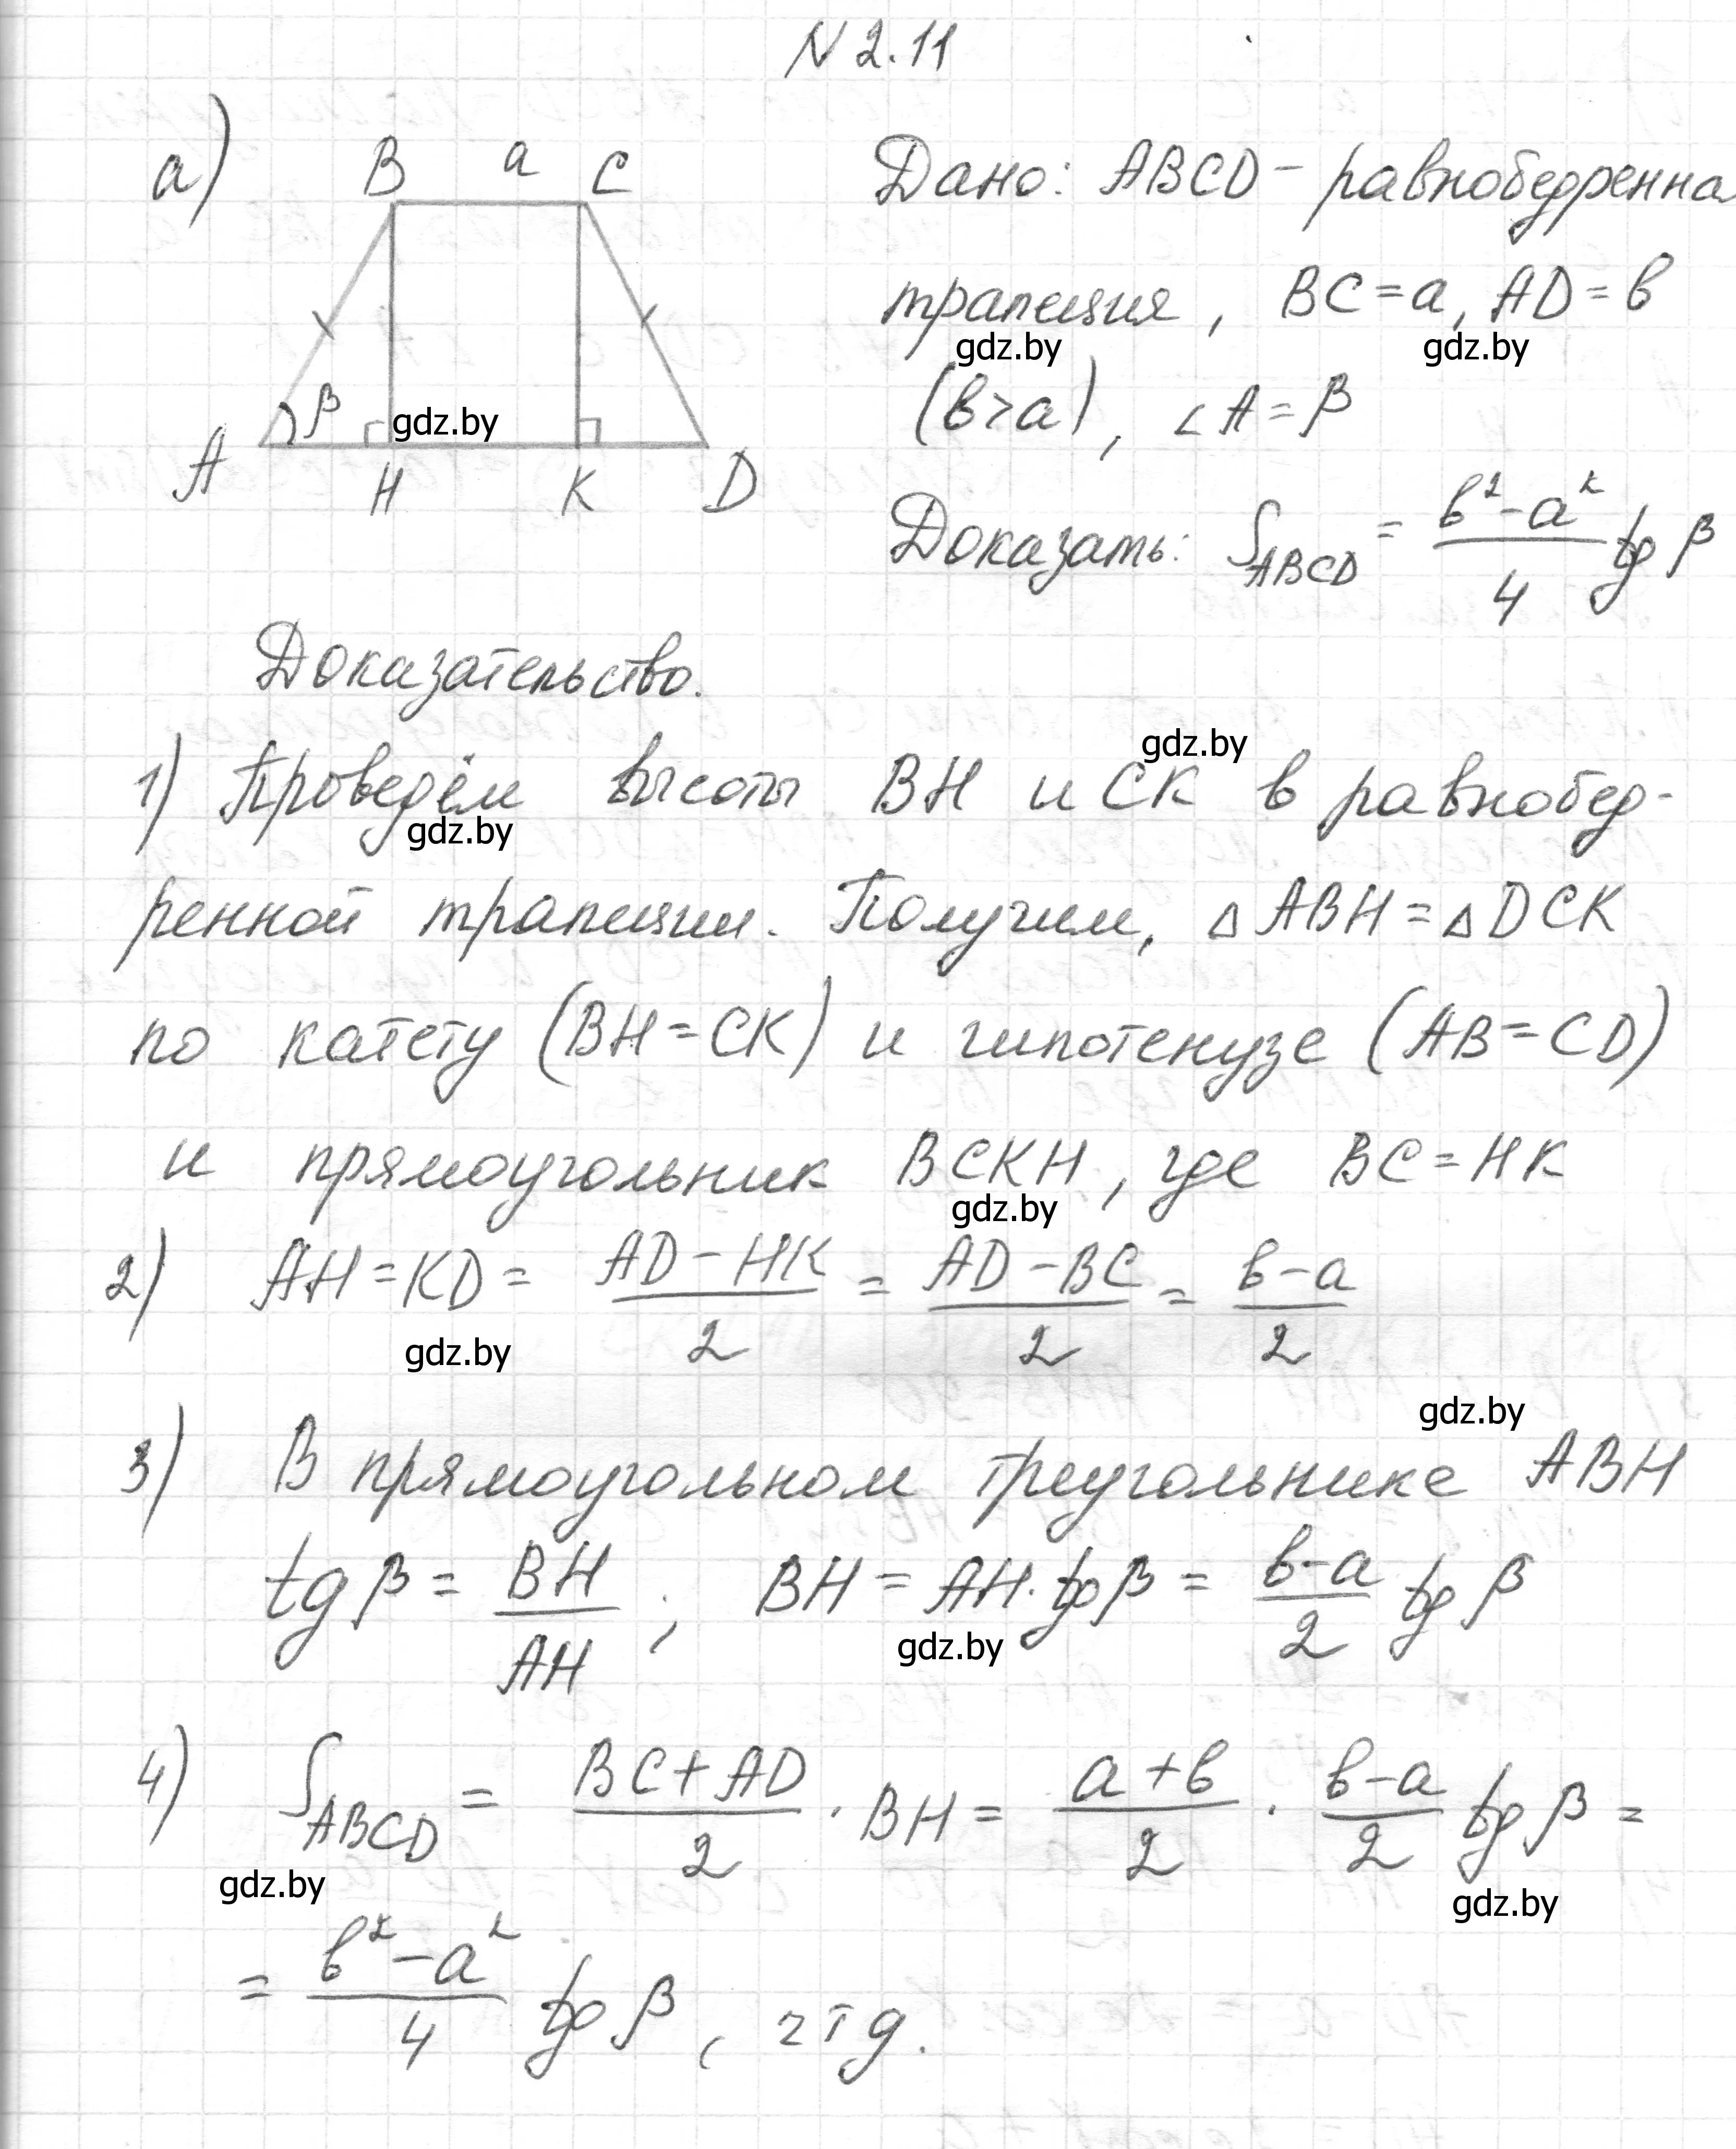 N 2.11
а)
B a C
Дано: ABCD - равнобедренна
трапеция, BC = a, AD = b
gdz.by gdz.by
(b > a), ∠A = β
β gdz.by
A H K D
Доказать: S_ABCD = (b² - a²)/4 tg β
Доказательство.
gdz.by
1) Проведём высоты BH и CK в равнобед-
gdz.by
ренной трапеции. Получим, △ABH = △DCK
по катету (BH = CK) и гипотенузе (AB = CD)
и прямоугольник BCKH, где BC = HK
gdz.by
2) AH = KD = (AD - HK)/2 = (AD - BC)/2 = (b - a)/2
gdz.by
gdz.by
3) В прямоугольном треугольнике ABH
tg β = BH/AH ; BH = AH · tg β = (b - a)/2 tg β
gdz.by
4) S_ABCD = (BC + AD)/2 · BH = (a + b)/2 · (b - a)/2 tg β =
gdz.by gdz.by
= (b² - a²)/4 tg β, чтд.